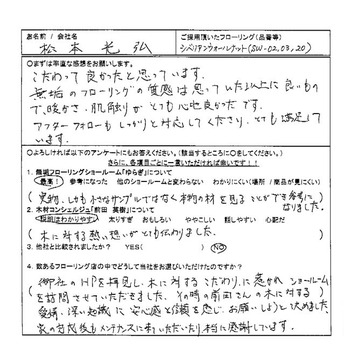 お名前/会社名
松本 光弘
ご採用頂いたフローリング(品番等)
シベリアンウォールナット(SW-02,03,20)
○まずは率直な感想をお願いします。
こだわって良かったと思っています。
無垢のフローリングの質感は思っていた以上に良いもの
で、暖かさ、肌触りがとても心地良かったです。
アフターフォローもしっかりと対応してくださり、とても満足して
います。
○よろしければ以下のアンケートにもお答えください。(該当するところに○をしてください。)
さらに、各項目ごとに一言いただければ幸いです!!
1. 無垢フローリングショールーム「ゆらぎ」について
最高! 参考になった 他のショールームと変わらない わかりにくい(場所 / 商品が見にくい)
(実物、しかも小さなサンプルではなく本物の材を見ることができ参考に
なりました。)
2. 木材コンシェルジュ「前田 英樹」について
説明さわかりやすい 太りすぎ おもしろい ややこしい 話しやすい 心配だ
(木に対する熱い想いがとても伝わりました。)
3. 他社と比較されましたか? YES( ) NO
4. 数あるフローリング店の中でどうして当社をお選びいただけたのですか?
御社のHPを拝見し、木に対するこだわりに惹かれ ショールーム
を訪問させていただきました。その時の前田さんの木に対する
愛情、深い知識に安心感と信頼を感じ、お願いしようと決めました。
家の完成後もメンテナンスに来ていただいたり、本当に感謝しています。